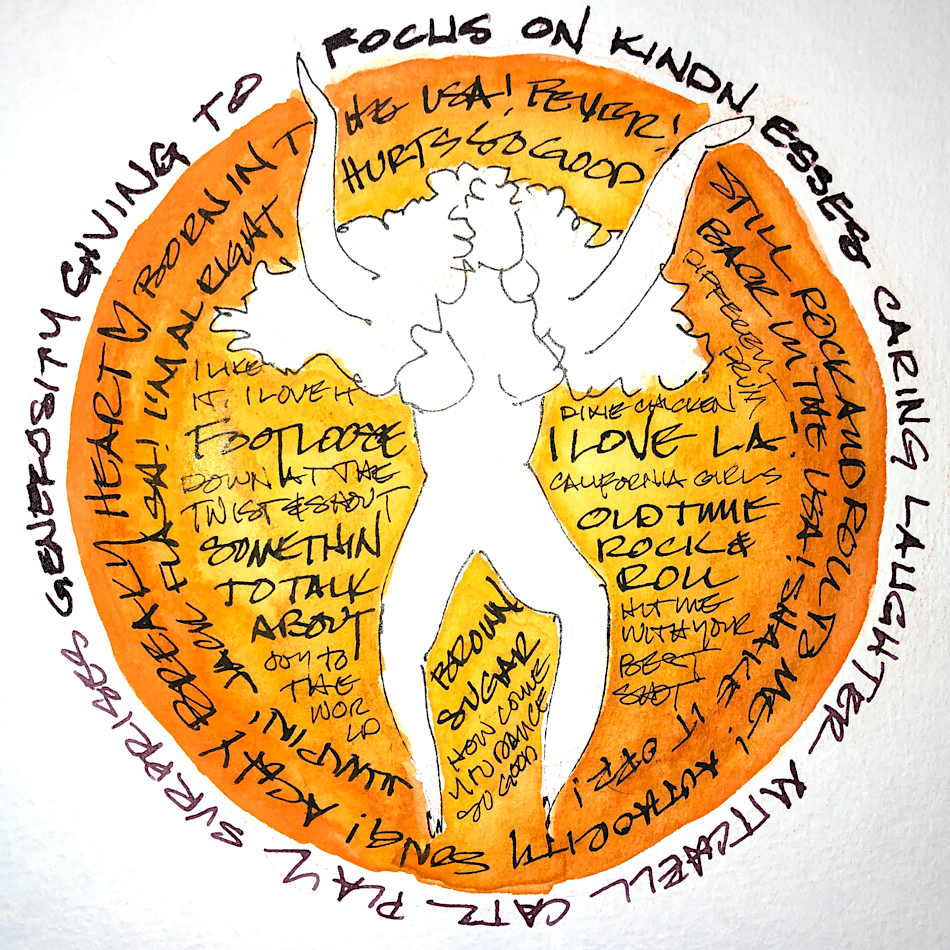 FOCUS ON KINDNESSES CARING LAUGHTER MITCHELL CATZ PLAY SURPRISES GENEROSITY GIVING TO
BORN IN THE USA! FEVER!
HURTS SO GOOD
STILL ROCK AND ROLL TO ME! AUTHORITY SONG! ACHY BREAKY HEART
BACK IN THE USA! SHAKE IT OFF!
DIFFERENT DRUM
JUMPIN' JACK FLASH! I'M ALRIGHT
I LIKE
IT, I LOVE IT
FOOTLOOSE
DOWN AT THE
TWIST & SHOUT
SOMETHIN
TO TALK
ABOUT
JOY TO
THE
WOR
LD
DIXIE CHICKEN
I LOVE LA
CALIFORNIA GIRLS
OLD TIME
ROCK &
ROLL
HIT ME
WITH YOUR
BEST
SHOT
BROWN
SUGAR
HOW COME
YOU DANCE
SO GOOD